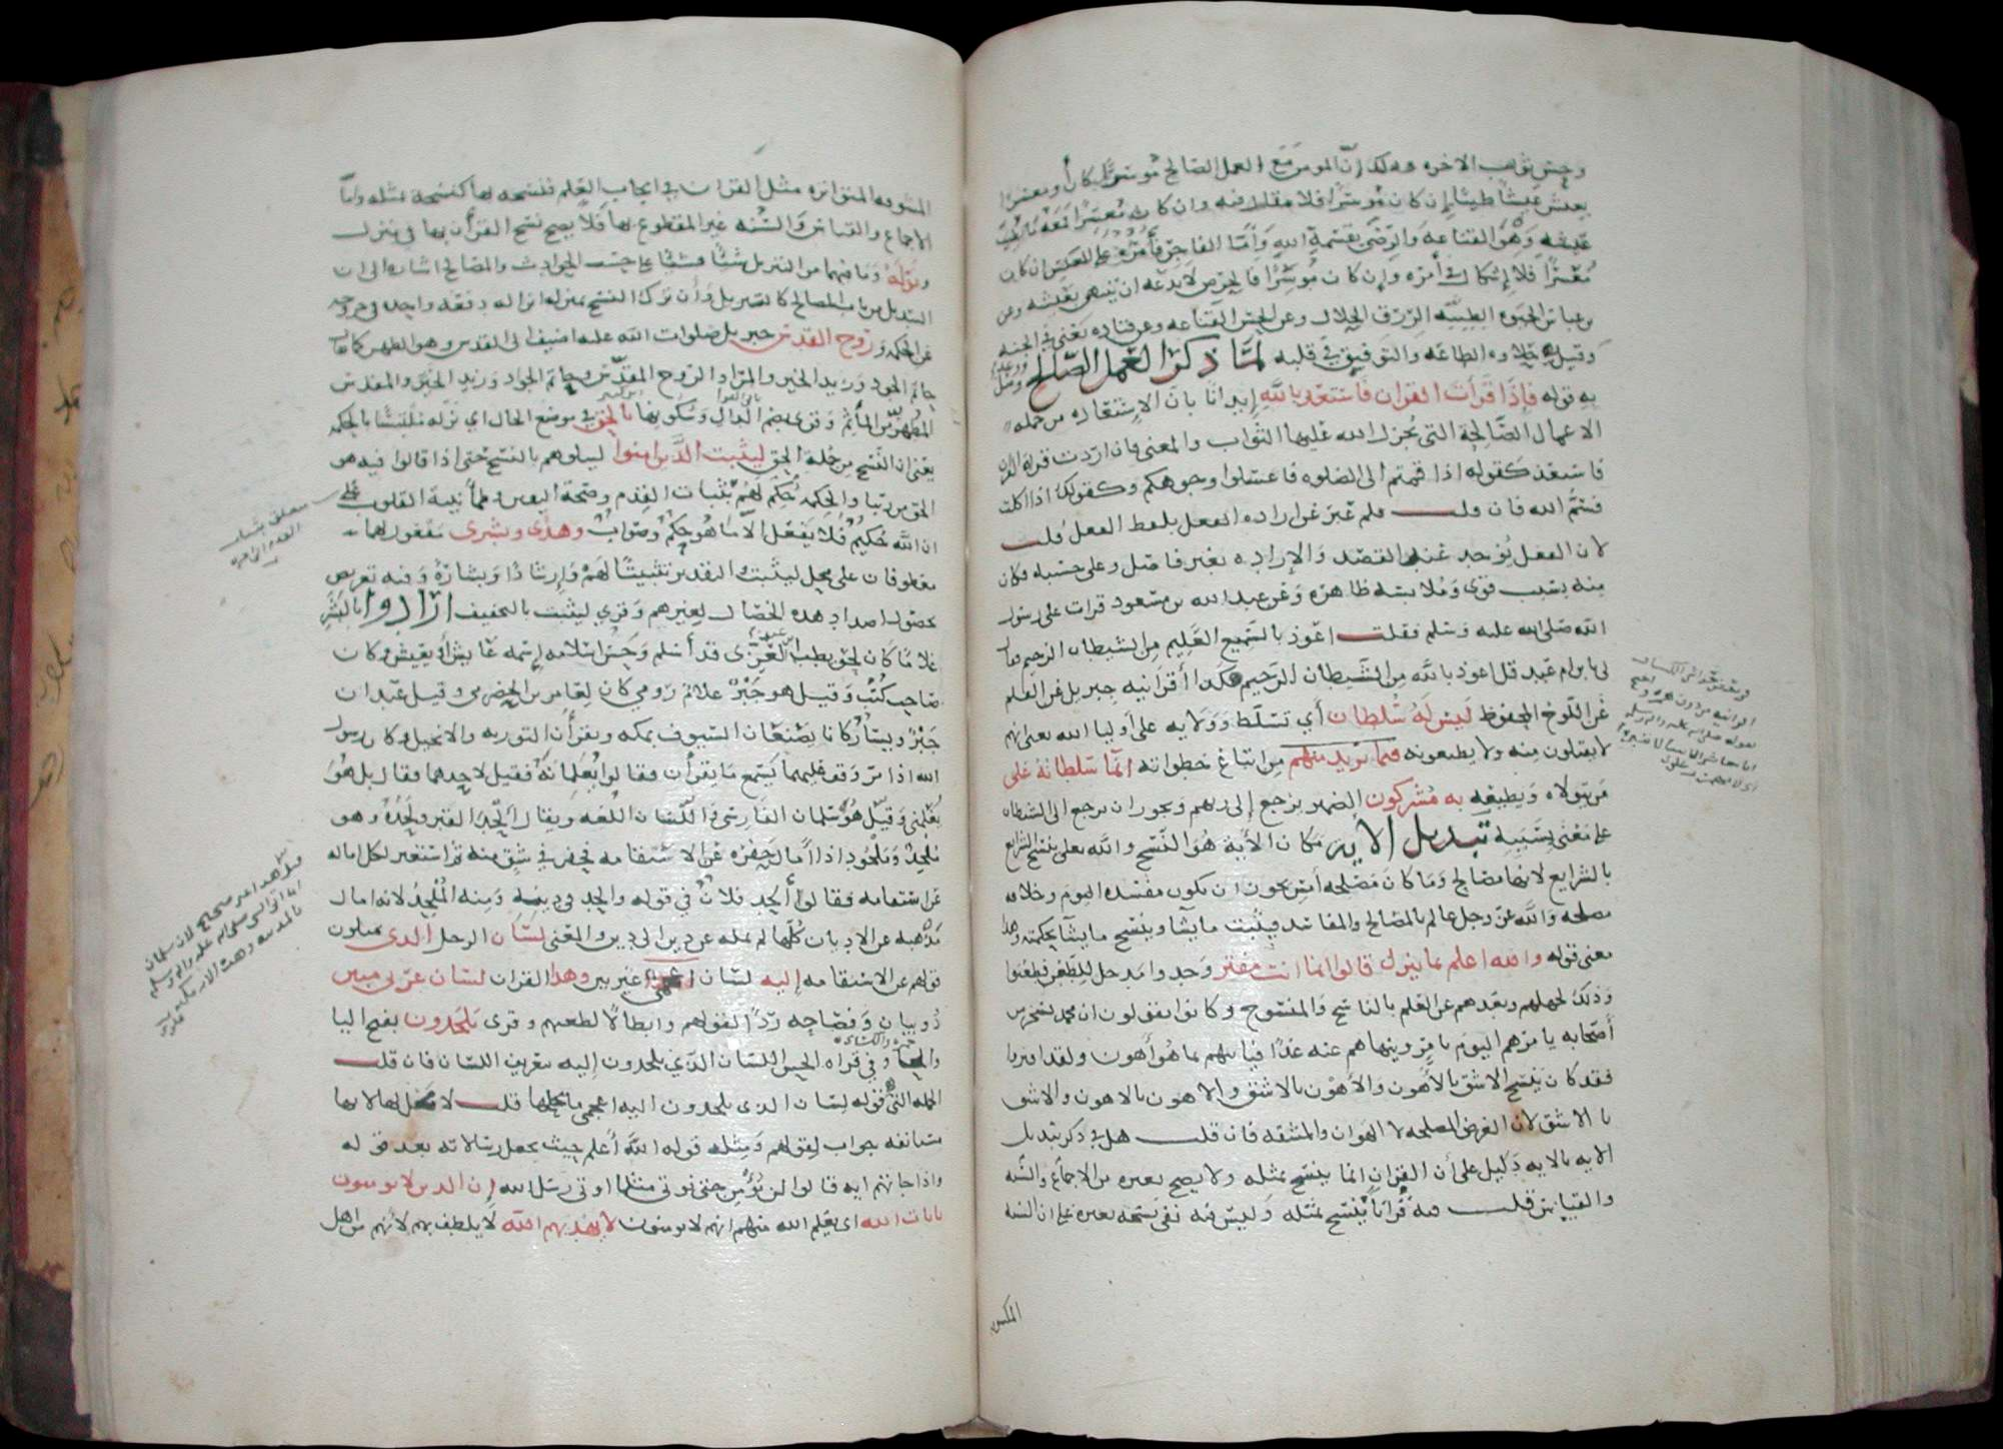 وحسن ثواب الاخره وذلك ان المومن مع العمل الصالح موسرا كان او معسرا
يعيش عيشا طيبا ان كان موسرا فلا مقال فيه وان كان معسرا فمعه ما يطيب
عيشه وهو القناعه والرضى بقسمة الله واما الفاجر فامره على العكس ان كان
معسرا فلا اشكال في امره وان كان موسرا فالحرص لا يدعه ان يتهنى بعيشه وعن
بن عباس الحيوه الطيبه الرزق الحلال وعن الحسن القناعه وعن قتاده يعني في الجنه
وقيل هي حلاوه الطاعه والتوفيق في قلبه لما ذكر العمل الصالح ووعد عليه وصل
به قوله فاذا قرات القران فاستعذ بالله ايذانا بان الاستعاذه من جمله
الاعمال الصالحة التي يجزل الله عليها الثواب والمعنى فاذا اردت قراه القران
فاستعذ كقوله اذا قمتم الى الصلوه فاغسلوا وجوهكم وكقولك اذا اكلت
فسم الله فان قلت فلم عبر عن اراده الفعل بلفظ الفعل قلت
لان الفعل يوجد عند القصد والاراده بغير فاصل وعلى حسبه فكان
منه بسبب قوى وملابسه ظاهره وعن عبد الله بن مسعود قرات على رسول
الله صلى الله عليه وسلم فقلت اعوذ بالسميع العليم من الشيطان الرجيم فقال
لي يا بن ام عبد قل اعوذ بالله من الشيطان الرجيم هكذا اقرانيه جبريل عن القلم
عن اللوح المحفوظ ليس له سلطان أي تسلط وولايه على أوليا الله يعنى انهم
لا يقبلون منه ولا يطيعونه فيما يريد منهم من اتباع خطواته انما سلطانه على
من يتولاه ويطيعه به مشركون الضمير يرجع إلى ربهم ويجوز ان يرجع الى الشيطان
على معنى بسببه تبديل الاية مكان الأية هو النسخ والله تعلى ينسخ الشرايع
بالشرايع لانها مصالح وما كان مصلحه امس يجوز ان يكون مفسده اليوم وخلافه
مصلحه والله عز وجل عالم بالمصالح والمفاسد فيثبت ما يشآ وينسخ ما يشآ بحكمته وهذا
معنى قوله والله اعلم بما ينزل قالوا انما انت مفتر وجدوا مدخلا للطعن فطعنوا
وذلك لجهلهم وبعدهم عن العلم بالناسخ والمنسوخ وكانوا يقولون ان محمد يسخر من
أصحابه يامرهم اليوم بامر وينهاهم عنه غدا فياتيهم بما هو أهون ولقد افتروا
فقد كان ينسخ الاشق بالأهون والأهون بالاشق والاهون بالاهون والاشق
بالاشق لان الغرض المصلحه لا الهوان والمشقه فان قلت هل في ذكر تبديل
الايه بالايه دليل على أن القران انما ينسخ بمثله ولا يصح بغيره من الاجماع والسنه
والقياس قلت فيه قرأنا ينسخ بمثله وليس فيه نفى نسخه بغيره على ان السنه
المكسو
المسوفه المتواتره مثل القران في ايجاب العلم فنسخه بها كنسخه بمثله واما
الاجماع والقياس والسنه غير المقطوع بها فلا يصح نسخ القرأن بها في ينزل
ونزله وما فيهما من التنزيل شيئا فشيئا على حسب الحوادث والمصالح اشاره الى ان
التبديل من باب المصالح كالتنزيل وأن ترك النسخ بمنزله انزاله دفعه واحده في خروجه
عن الحكمه و روح القدس جبريل صلوات الله عليه اضيف الى القدس وهو الطهر كما يقال
حاتم الجود وزيد الخير والمراد الروح المقدس وحاتم الجواد وزيد الخير والمقدس
المطهر من المأثم وقرى بضم الدال وسكونها بالحق في موضع الحال اي نزله ملتبسا بالحكمه
يعنى ان النسخ من جمله الحق ليثبت الذين امنوا ليبلوهم بالنسخ حتى اذا قالوا فيه هو
الحق من ربنا والحكمه حكم لهم بثبات القدم وصحة اليقين وطمأنينة القلوب على
ان الله حكيم فلا يفعل الا ما هو حكمه وصواب وهدى وبشرى مفعول لهما
معطوفان على محل ليثبت والتقدير تثبيتا لهم وارشادا وبشارة وفيه تعريض
بحصول اضداد هذه الخصال لغيرهم وقري ليثبت بالتخفيف ارادوا بالبشر
غلاما كان لحويطب بن عبد العزى قد أسلم وحسن اسلامه اسمه عايش أو يعيش وكان
صاحب كتب وقيل هو جبر غلام رومي كان لعامر بن الحضرمي وقيل عبدان
جبر ويسار كانا يصنعان السيوف بمكه ويقرأن التوريه والانجيل فكان رسول
الله اذا مر وقف عليهما يسمع ما يقرأن فقالوا يعلمانه فقيل لاحدهما فقال بل هو
يعلمنى وقيل هو سلمان الفارسي واللسان اللغه ويقال الحد القبر ولحده وهو
ملحد وملحود اذا أمال حفره عن الاستقامه فحفر في شق منه ثم استعير لكل اماله
عن استقامه فقالوا ألحد فلان في قوله والحد في دينه ومنه الملحد لانه امال
مذهبه عن الاديان كلها لم يمله عن دين الى دين والمعنى لسان الرجل الذى يميلون
قولهم عن الاستقامه إليه لسان اعجمي غير بين وهذا القران لسان عربى مبين
ذو بيان وفصاحه ردا لقولهم وابطالا لطعنهم وقرى يلحدون بفتح اليا
والحا وفي قراه الحسن اللسان الذي يلحدون إليه بتعريف اللسان فان قلت
الجمله التى هي قوله لسان الذى يلحدون اليه اعجمى ما محلها قلت لا محل لها لانها
مستانفه جواب لقولهم ومثله قوله الله أعلم حيث يجعل رسالاته بعد قوله
واذا جاتهم ايه قالوا لن نؤمن حتى نوتى مثل ما اوتى رسل الله ان الذين لا يومنون
بايات الله اى يعلم الله منهم انهم لا يومنون لا يهديهم الله لا يلطف بهم لأنهم من اهل